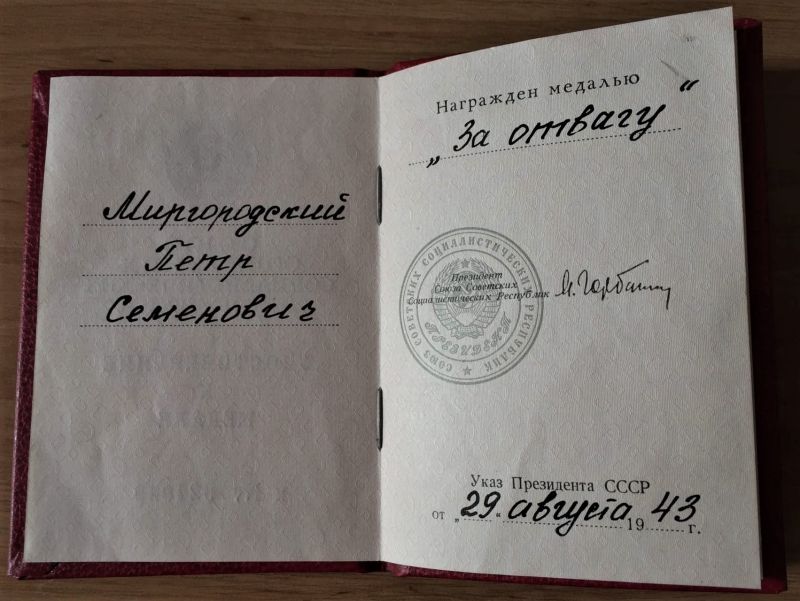 Миргородский
Петр
Семенович
Награжден медалью
„За отвагу“
СОЮЗ СОВЕТСКИХ СОЦИАЛИСТИЧЕСКИХ РЕСПУБЛИК
Президент
Союза Советских
Социалистических Республик М. Горбачев
ПРЕЗИДЕНТ
Указ Президента СССР
от „29“ августа 1943 г.